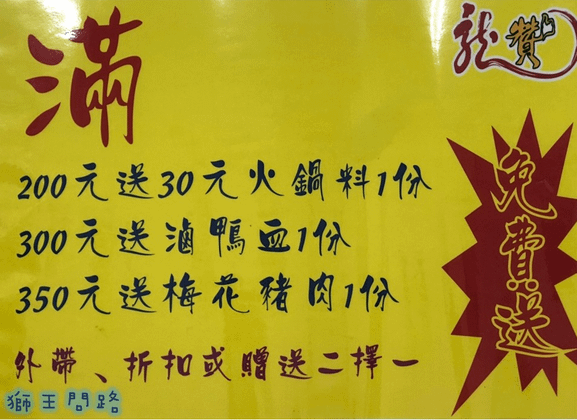 龍贊
滿
200元送30元火鍋料1份
300元送滷鴨血1份
350元送梅花豬肉1份
外帶、折扣或贈送二擇一
免費送
獅王問路